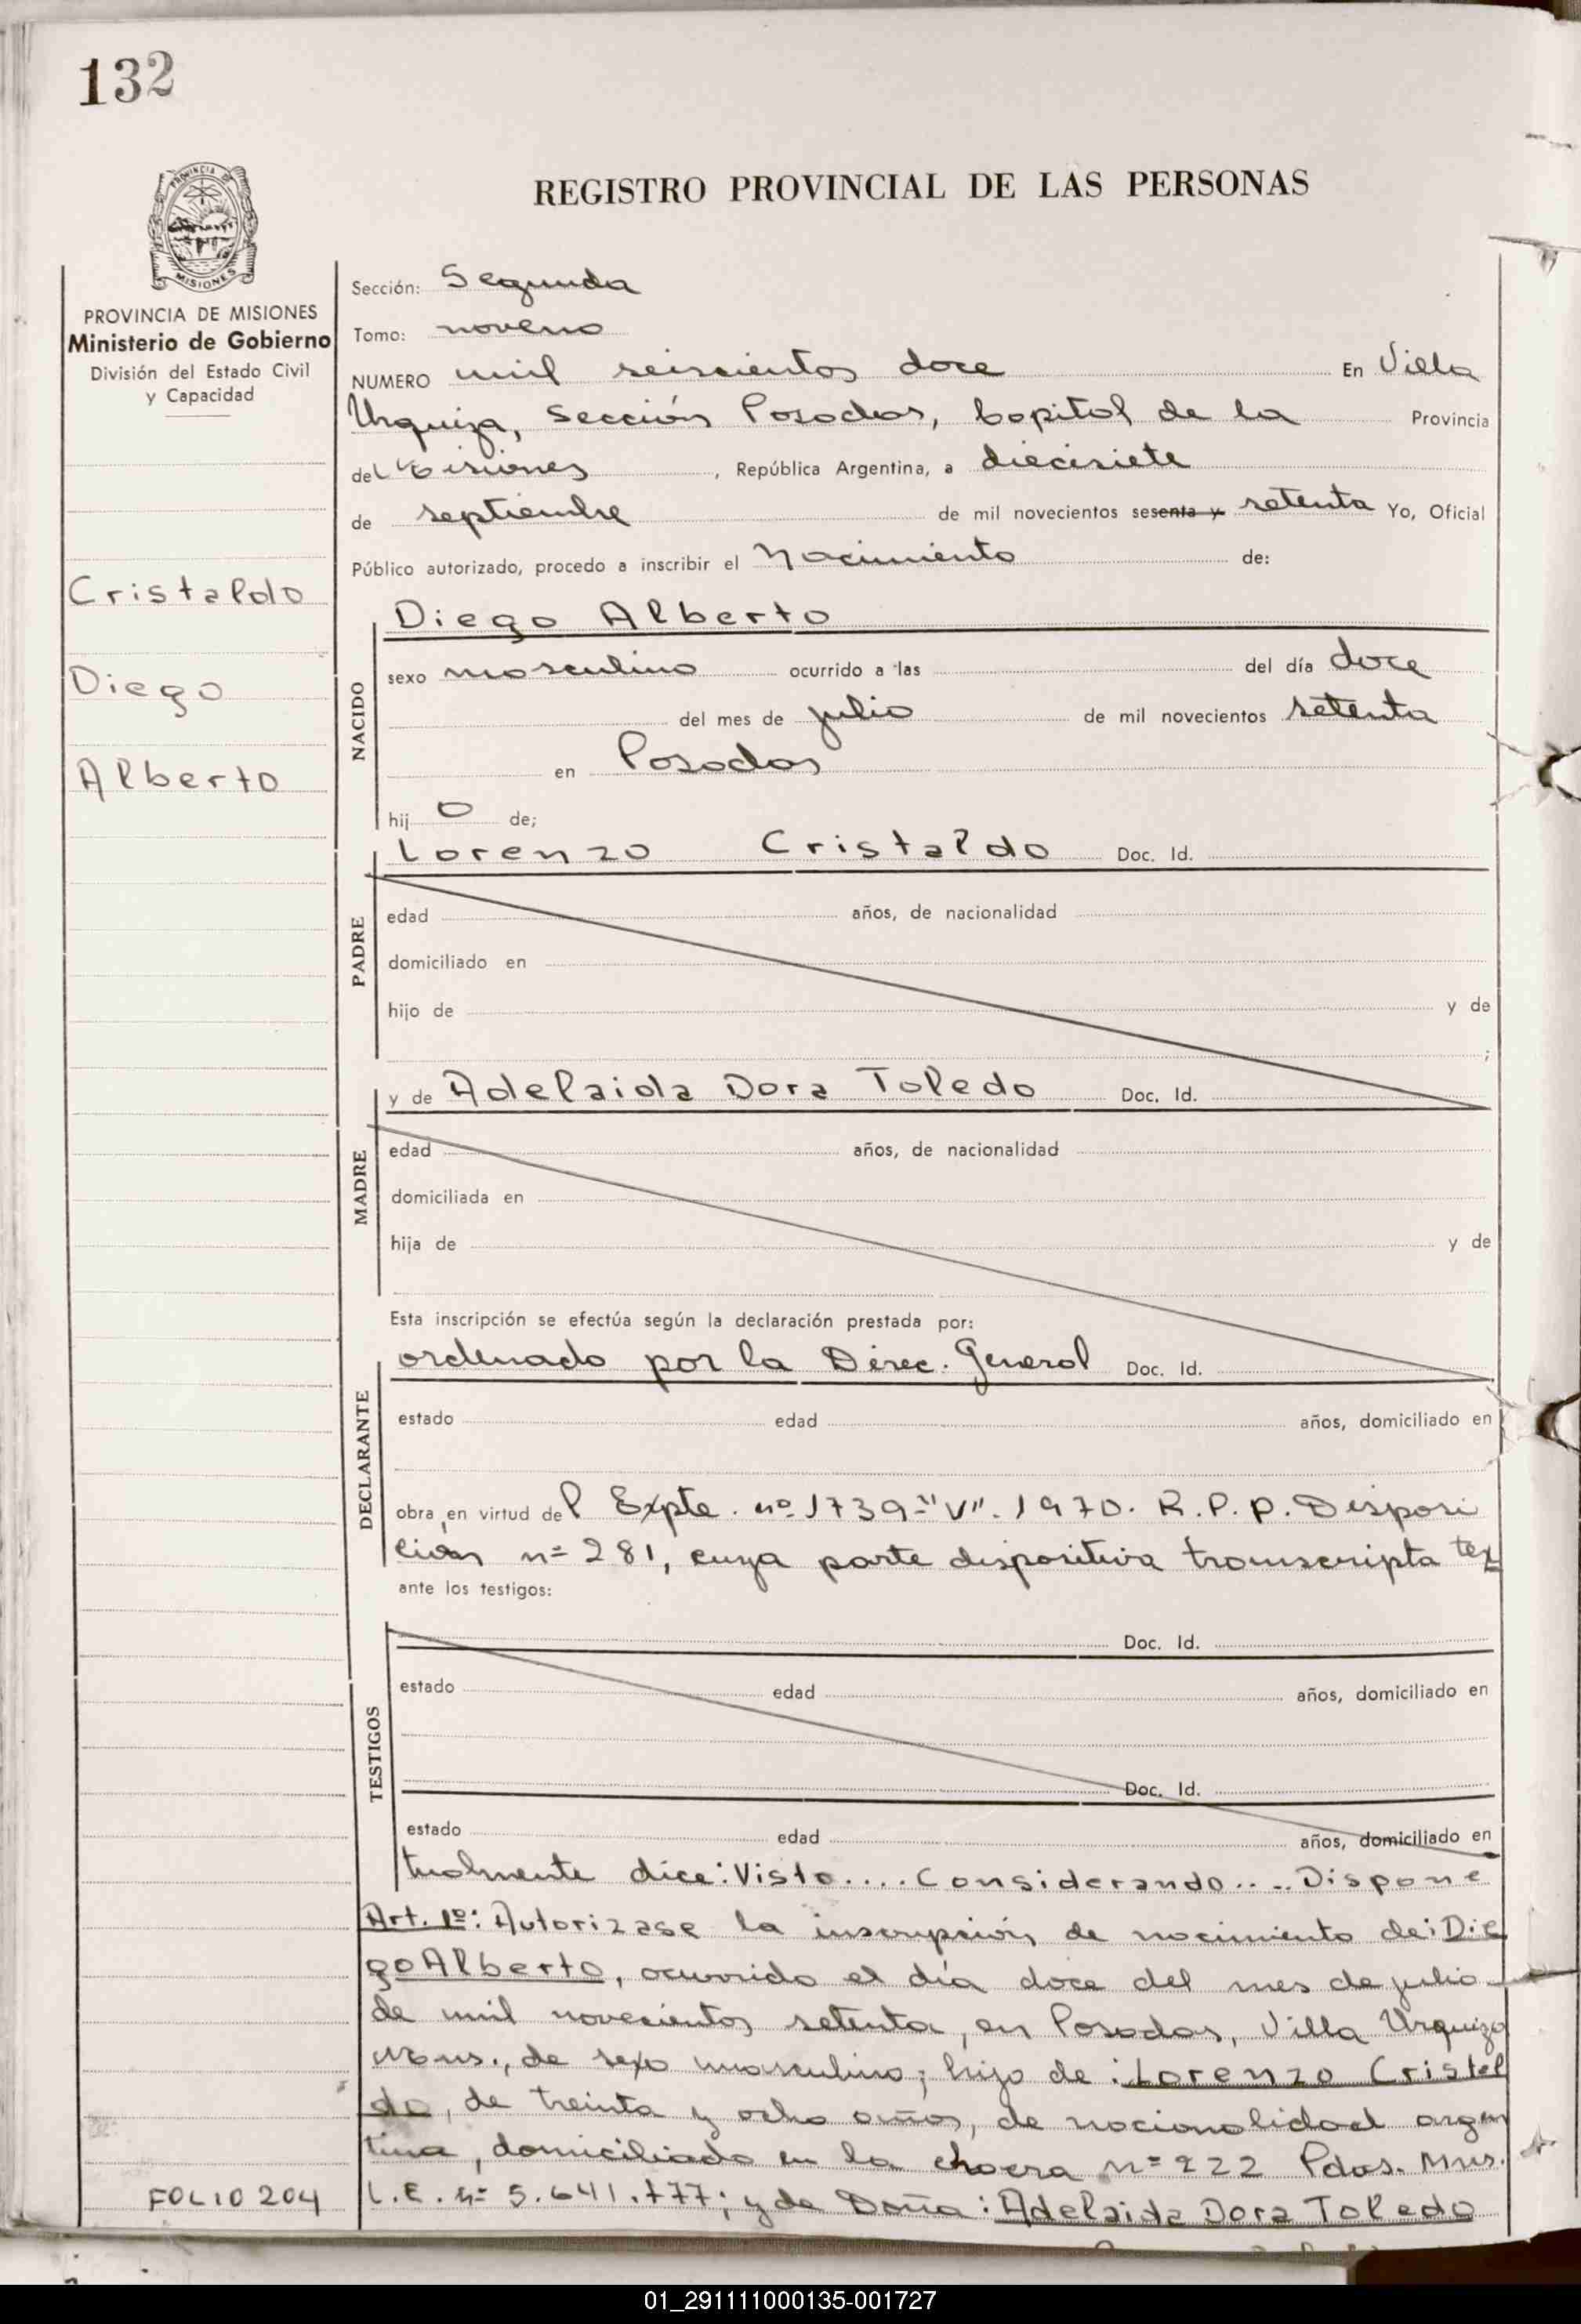 132
PROVINCIA DE
MISIONES
PROVINCIA DE MISIONES
Ministerio de Gobierno
División del Estado Civil
y Capacidad
Cristaldo
Diego
Alberto
FOLIO 204
REGISTRO PROVINCIAL DE LAS PERSONAS
Sección: Segunda
Tomo: noveno
NUMERO mil seiscientos doce En Villa
Urquiza, Sección Posadas, Capital de la Provincia
de Misiones, República Argentina, a diecisiete
de septiembre de mil novecientos sesenta y setenta Yo, Oficial
Público autorizado, procedo a inscribir el Nacimiento de:
NACIDO
Diego Alberto
sexo masculino ocurrido a las del día doce
del mes de julio de mil novecientos setenta
en Posadas
hij o de;
PADRE
Lorenzo Cristaldo Doc. Id.
edad años, de nacionalidad
domiciliado en
hijo de y de
;
MADRE
y de Adelaida Dora Toledo Doc. Id.
edad años, de nacionalidad
domiciliada en
hija de y de
Esta inscripción se efectúa según la declaración prestada por:
DECLARANTE
ordenado por la Direc. General Doc. Id.
estado edad años, domiciliado en
obra en virtud del Expte. nº 1739-"V". 1970. R.P.P. Disposi
ción nº 281, cuya parte dispositiva transcripta tex
ante los testigos:
TESTIGOS
Doc. Id.
estado edad años, domiciliado en
Doc. Id.
estado edad años, domiciliado en
tualmente dice: Visto.... Considerando.... Dispone
Art. 1º: Autorizase la inscripción de nacimiento de: Die
go Alberto, ocurrido el día doce del mes de julio
de mil novecientos setenta, en Posadas, Villa Urquiza
Mns., de sexo masculino; hijo de: Lorenzo Cristal
do, de treinta y ocho años, de nacionalidad argen
tina, domiciliado en la chacra nº 222 Pdas. Mns.
L.E. nº 5.641.777; y de Doña: Adelaida Dora Toledo
01_291111000135-001727